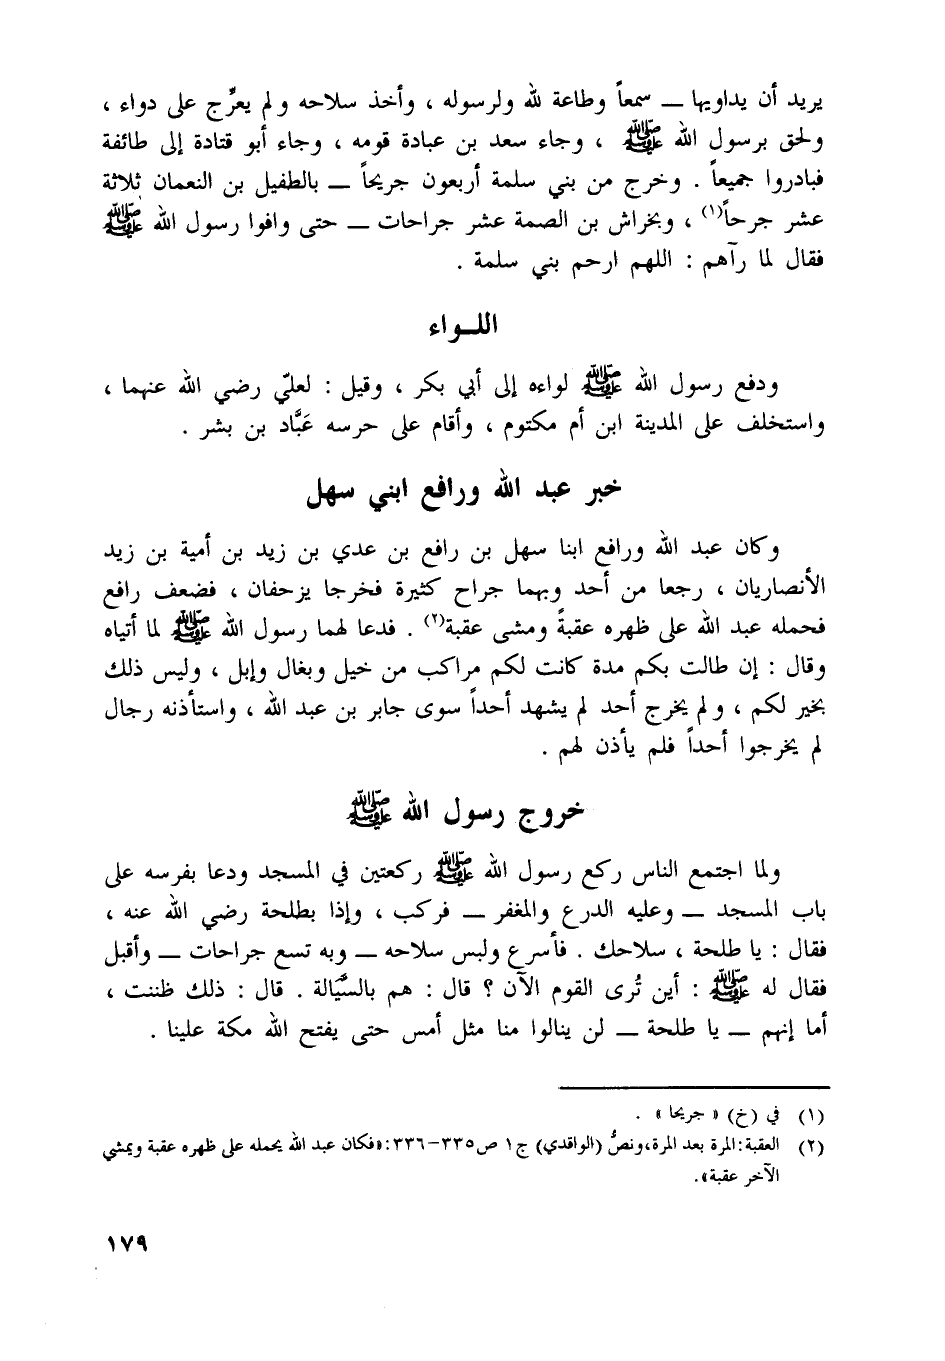 يريد أن يداويها ــ سمعاً وطاعة لله ولرسوله ، وأخذ سلاحه ولم يعرِّج على دواء ،
ولحق برسول الله ﷺ ، وجاء سعد بن عبادة قومه ، وجاء أبو قتادة إلى طائفة
فبادروا جميعاً . وخرج من بني سلمة أربعون جريحاً ــ بالطفيل بن النعمان ثلاثة
عشر جرحاً(١) ، وبخراش بن الصمة عشر جراحات ــ حتى وافوا رسول الله ﷺ
فقال لما رآهم : اللهم ارحم بني سلمة .
اللــواء
ودفع رسول الله ﷺ لواءه إلى أبي بكر ، وقيل : لعليّ رضي الله عنهما ،
واستخلف على المدينة ابن أم مكتوم ، وأقام على حرسه عَبَّاد بن بشر .
خبر عبد الله ورافع ابني سهل
وكان عبد الله ورافع ابنا سهل بن رافع بن عدي بن زيد بن أمية بن زيد
الأنصاريان ، رجعا من أحد وبهما جراح كثيرة فخرجا يزحفان ، فضعف رافع
فحمله عبد الله على ظهره عقبةً ومشى عقبة(٢) . فدعا لهما رسول الله ﷺ لما أتياه
وقال : إن طالت بكم مدة كانت لكم مراكب من خيل وبغال وإبل ، وليس ذلك
بخير لكم ، ولم يخرج أحد لم يشهد أحداً سوى جابر بن عبد الله ، واستأذنه رجال
لم يخرجوا أحداً فلم يأذن لهم .
خروج رسول الله ﷺ
ولما اجتمع الناس ركع رسول الله ﷺ ركعتين في المسجد ودعا بفرسه على
باب المسجد ــ وعليه الدرع والمغفر ــ فركب ، وإذا بطلحة رضي الله عنه ،
فقال : يا طلحة ، سلاحك . فأسرع ولبس سلاحه ــ وبه تسع جراحات ــ وأقبل
فقال له ﷺ : أين تُرى القوم الآن ؟ قال : هم بالسَّيالة . قال : ذلك ظننت ،
أما إنهم ــ يا طلحة ــ لن ينالوا منا مثل أمس حتى يفتح الله مكة علينا .
(١) في (خ) « جريحا » .
(٢) العقبة: المرة بعد المرة، ونصُّ (الواقدي) ج ١ ص ٣٣٥-٣٣٦: «فكان عبد الله يحمله على ظهره عقبة ويمشي
الآخر عقبة».
١٧٩